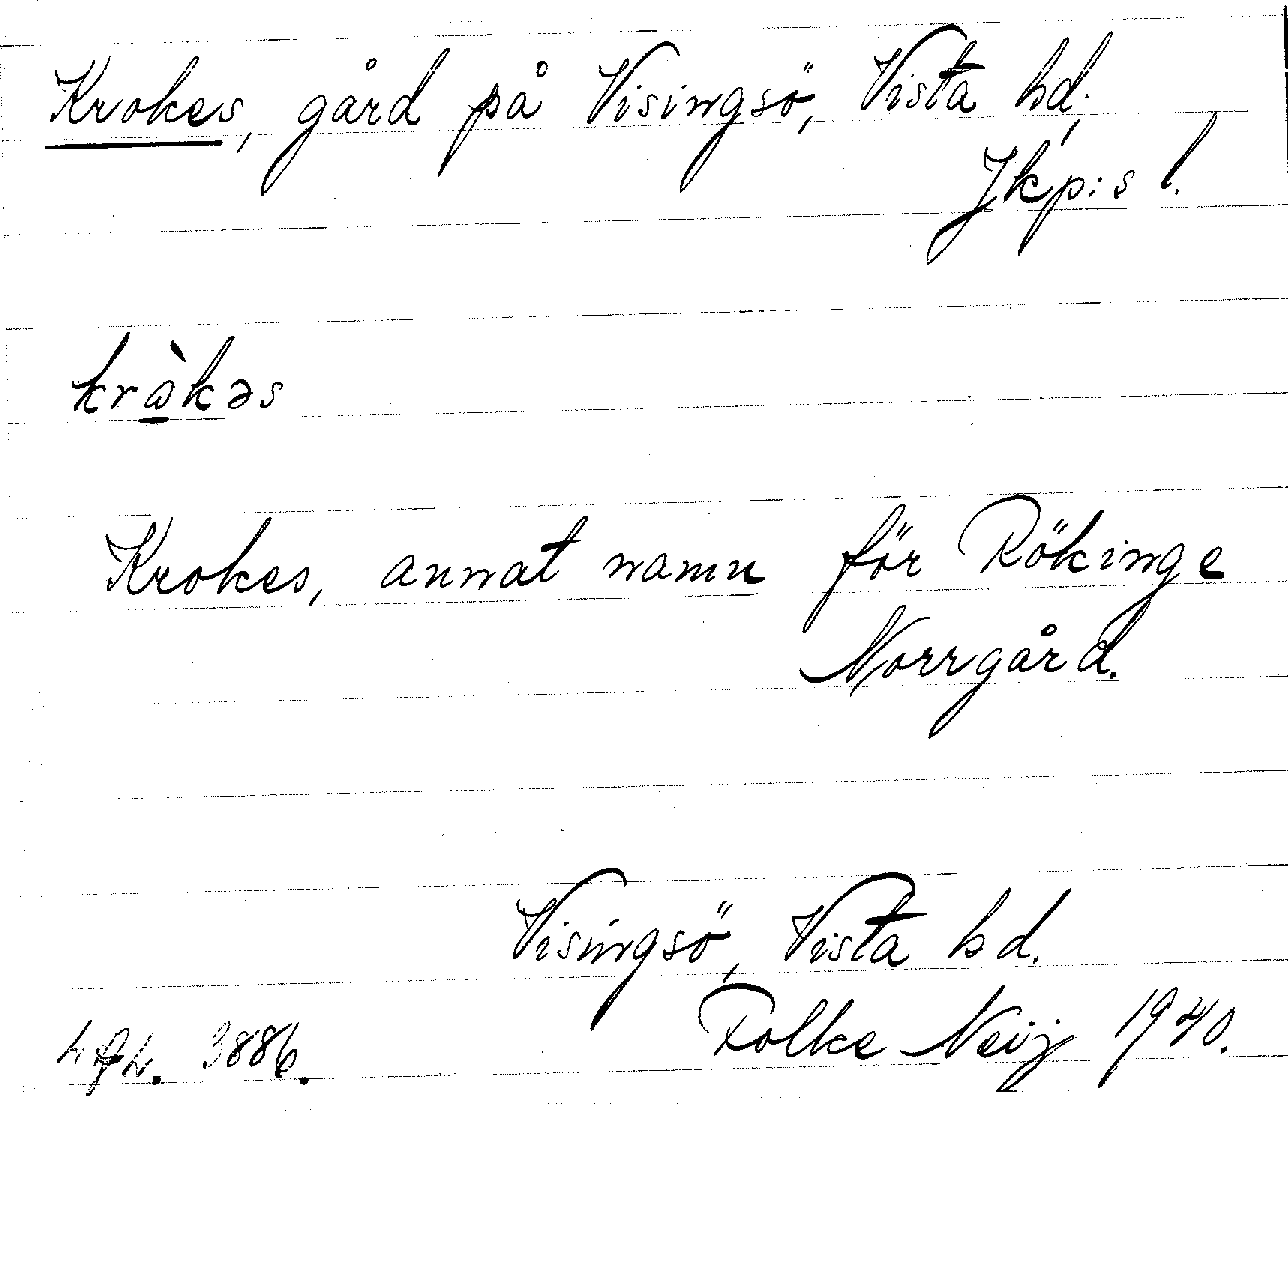 Krokes, gård på Visingsö, Vista hd,
Jkp:s l.
kr&#972;kəs
Krokes, annat namn för Rökinge
Norrgård.
Visingsö, Vista hd.
Folke Neij 1940.
3886.